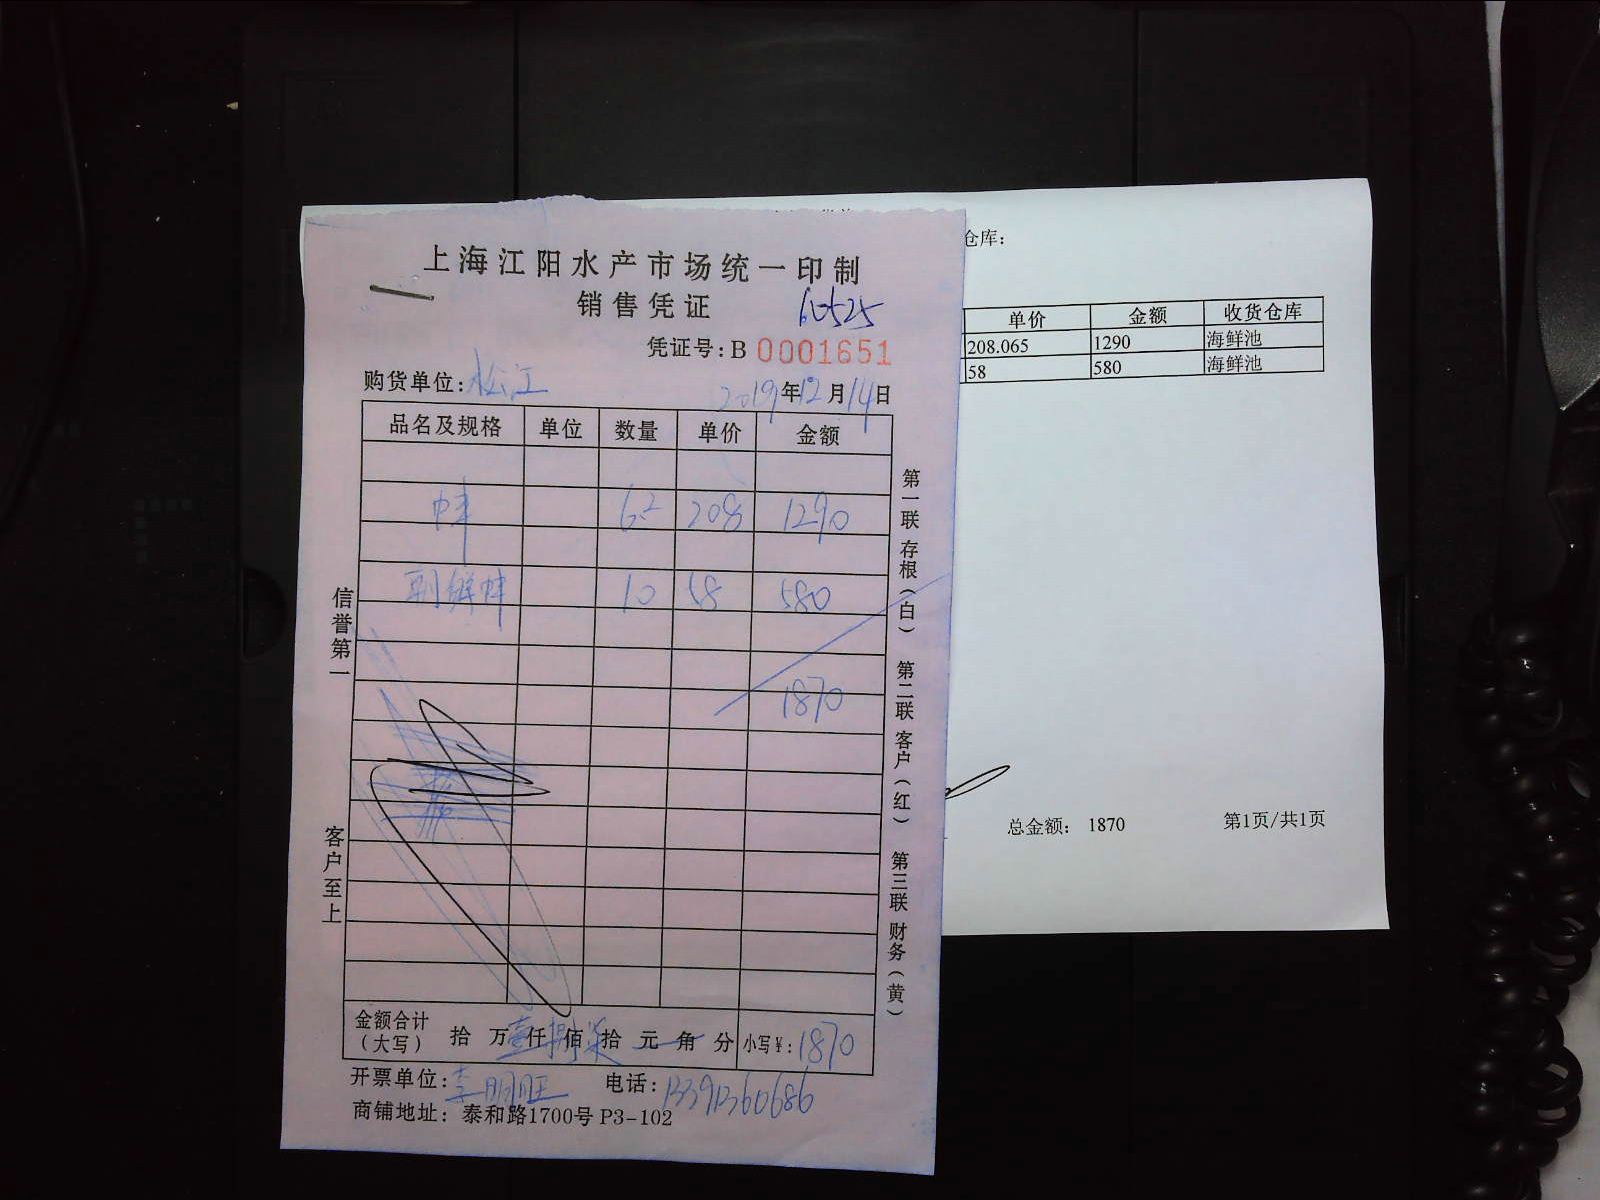 上海江阳水产市场统一印制
销售凭证
60525
凭证号:B 0001651
购货单位:松江
2019年12月14日
品名及规格 单位 数量 单价 金额
蚌 6.2 208 1290
10 58 580
1870
金额合计(大写) 拾 万壹仟捌佰柒拾元角分 小写¥:1870
开票单位:李明旺 电话:13391360686
商铺地址: 泰和路1700号 P3-102
信誉第一
客户至上
第一联 存根(白) 第二联 客户(红) 第三联 财务(黄)
仓库:
单价 金额 收货仓库
208.065 1290 海鲜池
58 580 海鲜池
总金额: 1870 第1页/共1页